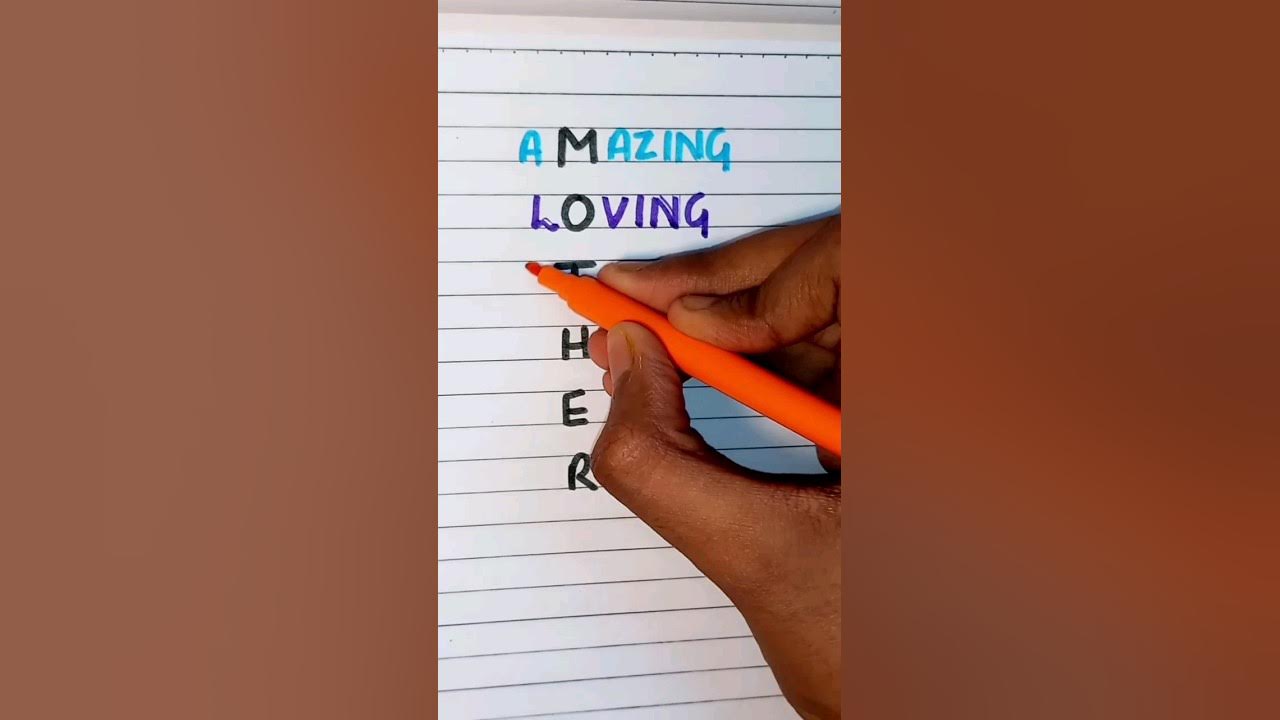 AMAZING
LOVING
T
H
E
R